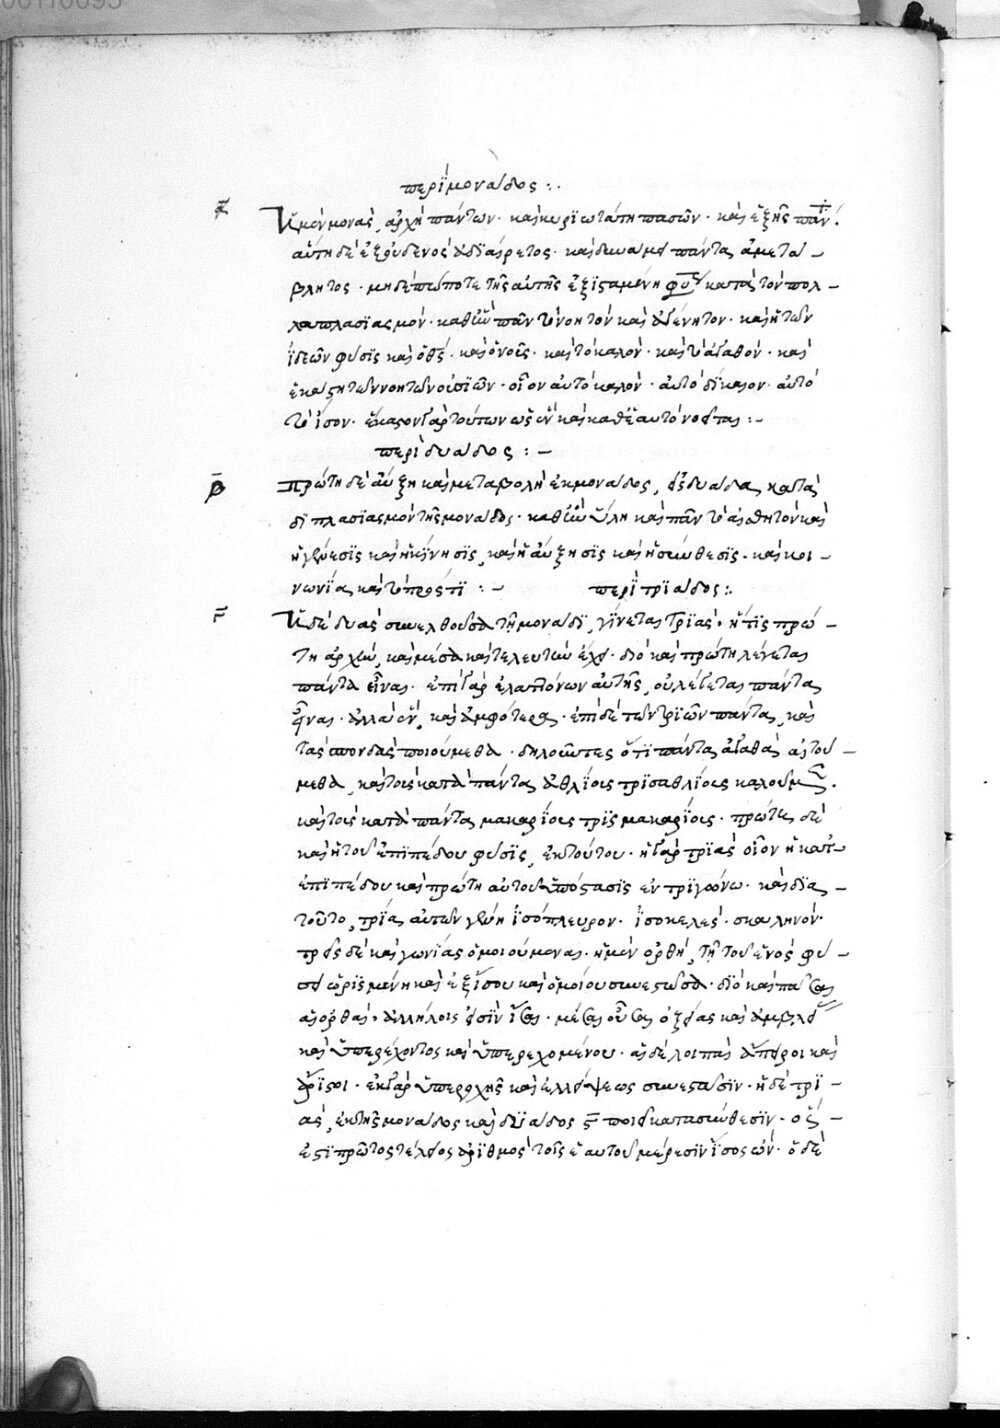 περὶ μονάδος :.
α Ἡ μὲν μονὰς, ἀρχὴ πάντων. καὶ κυριωτάτη πασῶν. καὶ ἐξῆς πάν
αὕτη δὲ ἐξ οὐδενὸς ἀδιαίρετος. καὶ δυνάμει πάντα, ἀμετά –
βλητος. μηδὲ πώποτε τῆς αὐτῆς ἐξισταμένη φύσεως κατὰ τὸν πολ –
λαπλασιασμόν. καθ' ἣν πᾶν τὸ νοητὸν καὶ ἀγένητον. καὶ ἡ τῶν
ἰδεῶν φύσις καὶ ὁ θς. καὶ ὁ νοῦς. καὶ τὸ καλὸν. καὶ τὸ ἀγαθόν. καὶ
ἑκάστη τῶν νοητῶν οὐσιῶν. οἷον αὐτὸ καλόν. αὐτὸ δίκαιον. αὐτὸ
τὸ ἴσον. ἕκαστον γὰρ τούτων ὡς ἓν καὶ καθ' ἑαυτὸ νοεῖται : –
περὶ δυάδος : –
β Πρώτη δὲ αὔξη καὶ μεταβολὴ ἐκ μονάδος, εἰς δυάδα, κατὰ
διπλασιασμὸν τῆς μονάδος. καθ' ἣν ὕλη καὶ πᾶν τὸ αἰσθητὸν καὶ
ἡ γένεσις καὶ ἡ κίνησις, καὶ ἡ αὔξησις καὶ ἡ σύνθεσις. καὶ κοι –
νωνία, καὶ τὸ πρός τι : – περὶ τριάδος :.
γ Ἡ δὲ δυὰς συνελθοῦσα τῇ μονάδι, γίνεται τριάς. ἥτις πρώ –
τη ἀρχὴν, καὶ μέσα καὶ τελευτὴν ἔχει. διὸ καὶ πρώτη λέγεται
πάντα εἶναι. ἐπὶ γὰρ ἐλαττόνων αὐτῆς, οὐ λέγεται πάντα
εἶναι. ἀλλὰ ἓν, καὶ ἀμφότερα. ἐπὶ δὲ τῶν τριῶν πάντα, καὶ
τὰς σπονδὰς ποιούμεθα. δηλοῦντες ὅτι πάντα ἀγαθὰ αἰτού –
μεθα, καὶ τοὺς κατὰ πάντα ἀθλίους τρισαθλίους καλοῦμεν.
καὶ τοὺς κατὰ πάντα μακαρίους τρὶς μακαρίους. πρώτη δὲ
καὶ ἡ τοῦ ἐπιπέδου φύσις, ἐκ τούτου. ἡ γὰρ τριὰς οἷον εἰκὼν
ἐπιπέδου καὶ πρώτη αὐτοῦ ὑπόστασις ἐν τριγώνῳ. καὶ διὰ –
τοῦτο, τρία αὐτῶν γένη ἰσόπλευρον. ἰσοσκελὲς. σκαληνόν.
τρεῖς δὲ καὶ γωνίας ὁμοιούμεναι. ἡ μὲν ὀρθὴ, τῇ τοῦ ἑνὸς φύ –
σει ὡρισμένη καὶ ἐξ ἴσου καὶ ὁμοίου συνεστῶσα. διὸ καὶ πᾶσαι
αἱ ὀρθαὶ ἀλλήλοις εἰσὶν ἴσαι. μέσαι οὖσαι ὀξείας καὶ ἀμβλείας
καὶ ὑπερέχοντος καὶ ὑπερεχομένου. αἱ δὲ λοιπαὶ ἄπειροι καὶ
ἀόριστοι. ἐκ γὰρ ὑπεροχῆς καὶ ἐλλείψεως συνεστᾶσιν. ἡ δὲ τρι –
ὰς, ἐκ τῆς μονάδος καὶ δυάδος ϛ ποιεῖ κατὰ σύνθεσιν. ὅς –
ἐστι πρῶτος τέλειος ἀριθμὸς τοῖς ἑαυτοῦ μέρεσιν ἴσος ὤν. ὁ δὲ